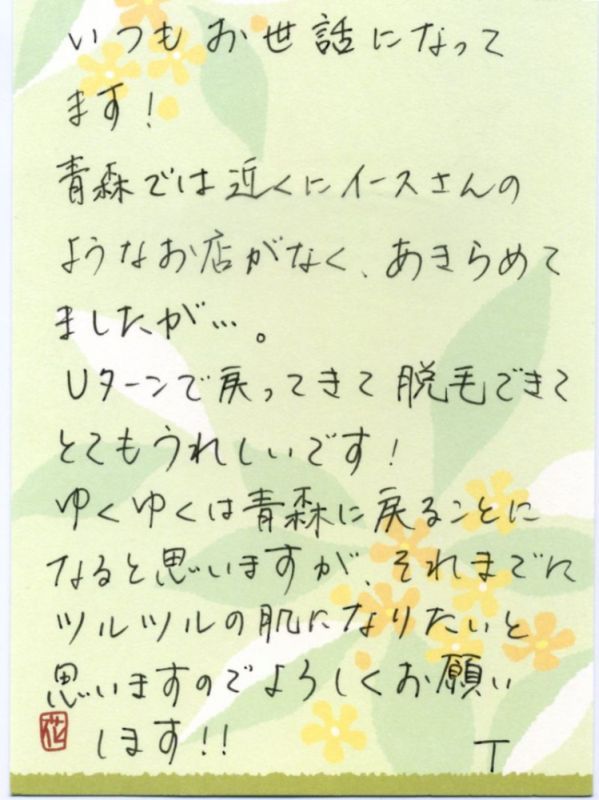 いつもお世話になって
ます!
青森では近くにイースさんの
ようなお店がなく、あきらめて
ましたが…。
Uターンで戻ってきて脱毛できて
とてもうれしいです!
ゆくゆくは青森に戻ることに
なると思いますが、それまでに
ツルツルの肌になりたいと
思いますのでよろしくお願い
します!!
花
T